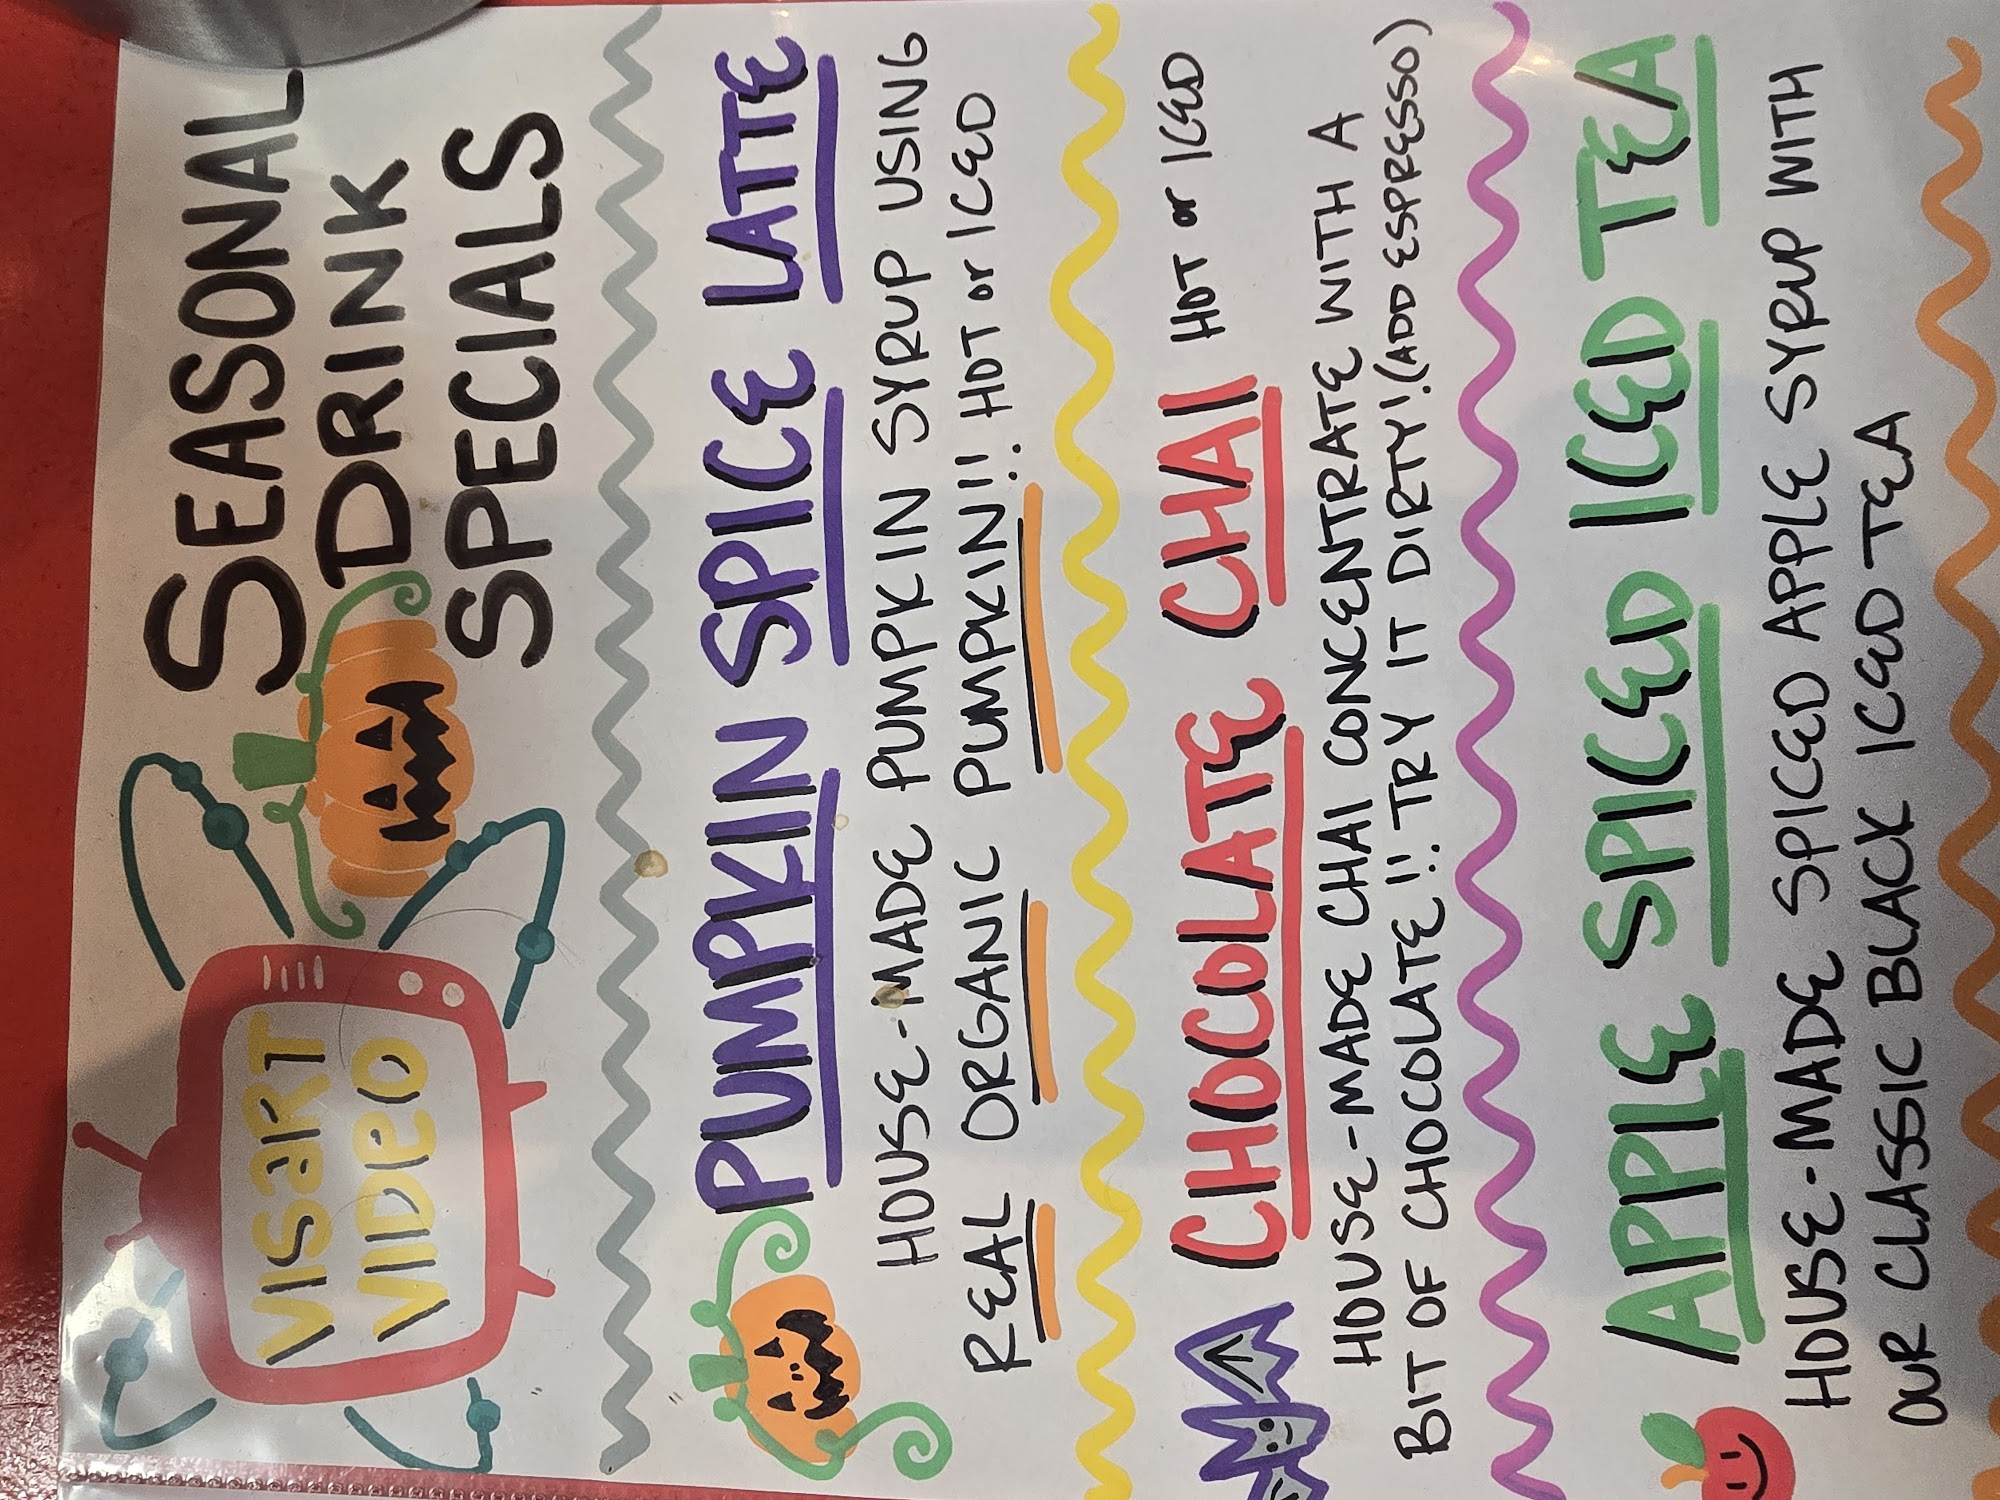 VISaRT
VIDEO
SEASONAL
DRINK
SPECIALS
PUMPKIN SPICE LATTE
HOUSE-MADE PUMPKIN SYRUP USING
REAL ORGANIC PUMPKIN!! HOT or ICED
CHOCOLATE CHAI HOT or ICED
HOUSE-MADE CHAI CONCENTRATE WITH A
BIT OF CHOCOLATE!! TRY IT DIRTY! (ADD ESPRESSO)
APPLE SPICED ICED TEA
HOUSE-MADE SPICED APPLE SYRUP WITH
OUR CLASSIC BLACK ICED TEA